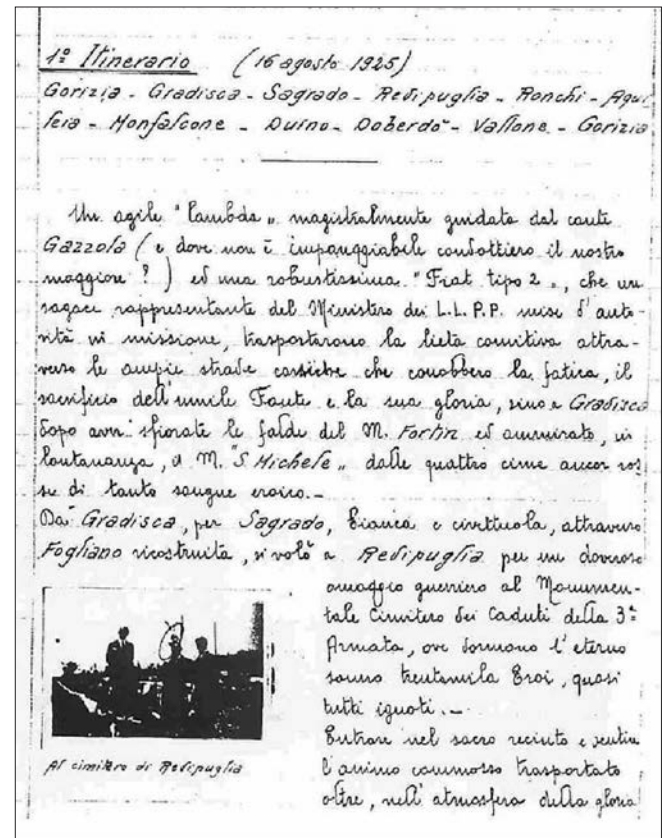 1º Itinerario (16 agosto 1925)
Gorizia - Gradisca - Sagrado - Redipuglia - Ronchi - Aqui
leia - Monfalcone - Duino - Doberdò - Vallone - Gorizia
Un agile "Lambda" magistralmente guidata dal caute
Gazzola (e dove non è impareggiabile condottiero il nostro
maggiore ?) ed una robustissima "Fiat tipo 2", che un
sagace rappresentante del Ministero dei L.L.P.P. mise d'auto-
rità in missione, trasportarono la lieta comitiva attra-
verso le ampie strade carsiche che conobbero la fatica, il
sacrificio dell'umile Fante e la sua gloria, sino a Gradisca
dopo aver sfiorate le falde del M. Fortin ed ammirato, in
lontananza, il M. "S. Michele" dalle quattro cime ancor ros
se di tanto sangue eroico.-
Da Gradisca, per Sagrado, bianca e civettuola, attraverso
Fogliano ricostruita, si volò a Redipuglia per un doveroso
omaggio guerriero al Monumen-
tale Cimitero dei Caduti della 3ª
Armata, ove dormono l'eterno
sonno trentamila Eroi, quasi
tutti ignoti.-
Entrare nel sacro recinto e sentire
l'animo commosso trasportato
oltre, nell'atmosfera della gloria
Al cimitero di Redipuglia